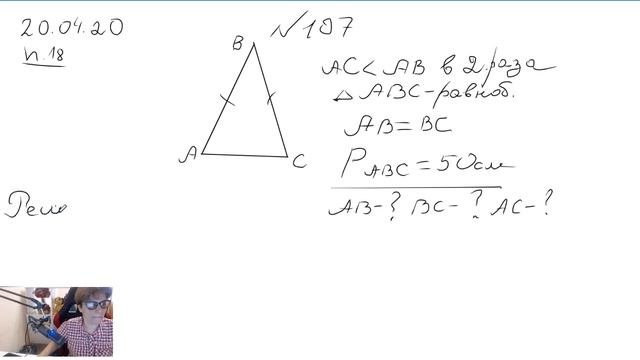 20.04.20
п.18
№107
B
A
C
AC < AB в 2 раза
△ ABC - равноб.
AB = BC
P ABC = 50см
AB - ? BC - ? AC - ?
Реш